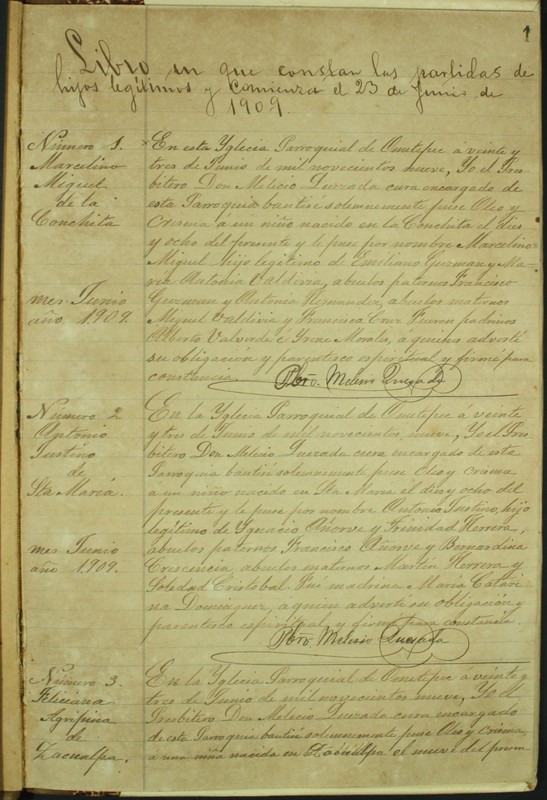 1
Libro en que constan las partidas de
hijos legítimos y comienza el 23 de Junio de
1909.
Número 1.
Marcelino
Miguel
de la
Conchita
mes Junio
año 1909.
En esta Yglecia Parroquial de Ometepec á veinte y
tres de Junio de mil novecientos nueve, Yo el Pres-
bitero Don Melecio Quezada cura encargado de
esta Parroquia bautisé solemnemente puse Oleo y
Crisma á un niño nacido en la Conchita el dies
y ocho del presente y le puse por nombre Marcelino
Miguel hijo legitimo de Emiliano Guzman y Ma-
ria Antonia Valdivia, abuelos paternos Francisco
Guzman y Antonia Hernandez, abuelos maternos
Miguel Valdivia y Francisca Cruz. Fueron padrinos
Alberto Valverde é Yrene Morales, a quienes advertí
su obligación y parentisco espiritual y firmé para
constancia.
Pbro. Melecio Quezada
Número 2
Antonio
Justino
de
Sta María.
mes Junio
año 1909.
En la Yglecia Parroquial de Ometepec á veinte
y tres de Junio de mil novecientos nueve, Yo el Pres-
bitero Don Melecio Quezada cura encargado de esta
Parroquia bautisé solemnemente puse Oleo y Crisma
a un niño nacido en Sta Maria el dies y ocho del
presente y le puse por nombre Antonio Justino, hijo
legítimo de Ygnacio Añorve y Trinidad Herrera,
abuelos paternos Francisco Añorve y Bernardina
Crescencia, abuelos maternos Martin Herrera y
Soledad Cristobal. Fué madrina Maria Catari
na Dominguez, a quien advertí su obligación y
parentesco espiritual y firmé para constancia.
Pbro. Melecio Quezada
Número 3.
Feliciana
Agrifina
de
Zacualpa.
En la Yglecia Parroquial de Ometepec á veinte y
tres de Junio de mil novecientos nueve, Yo el
Presbitero Don Melecio Quezada cura encargado
de esta Parroquia bautisé solemnemente puse Oleo y Crisma,
a una niña nacida en Zacualpa el nueve del presen-